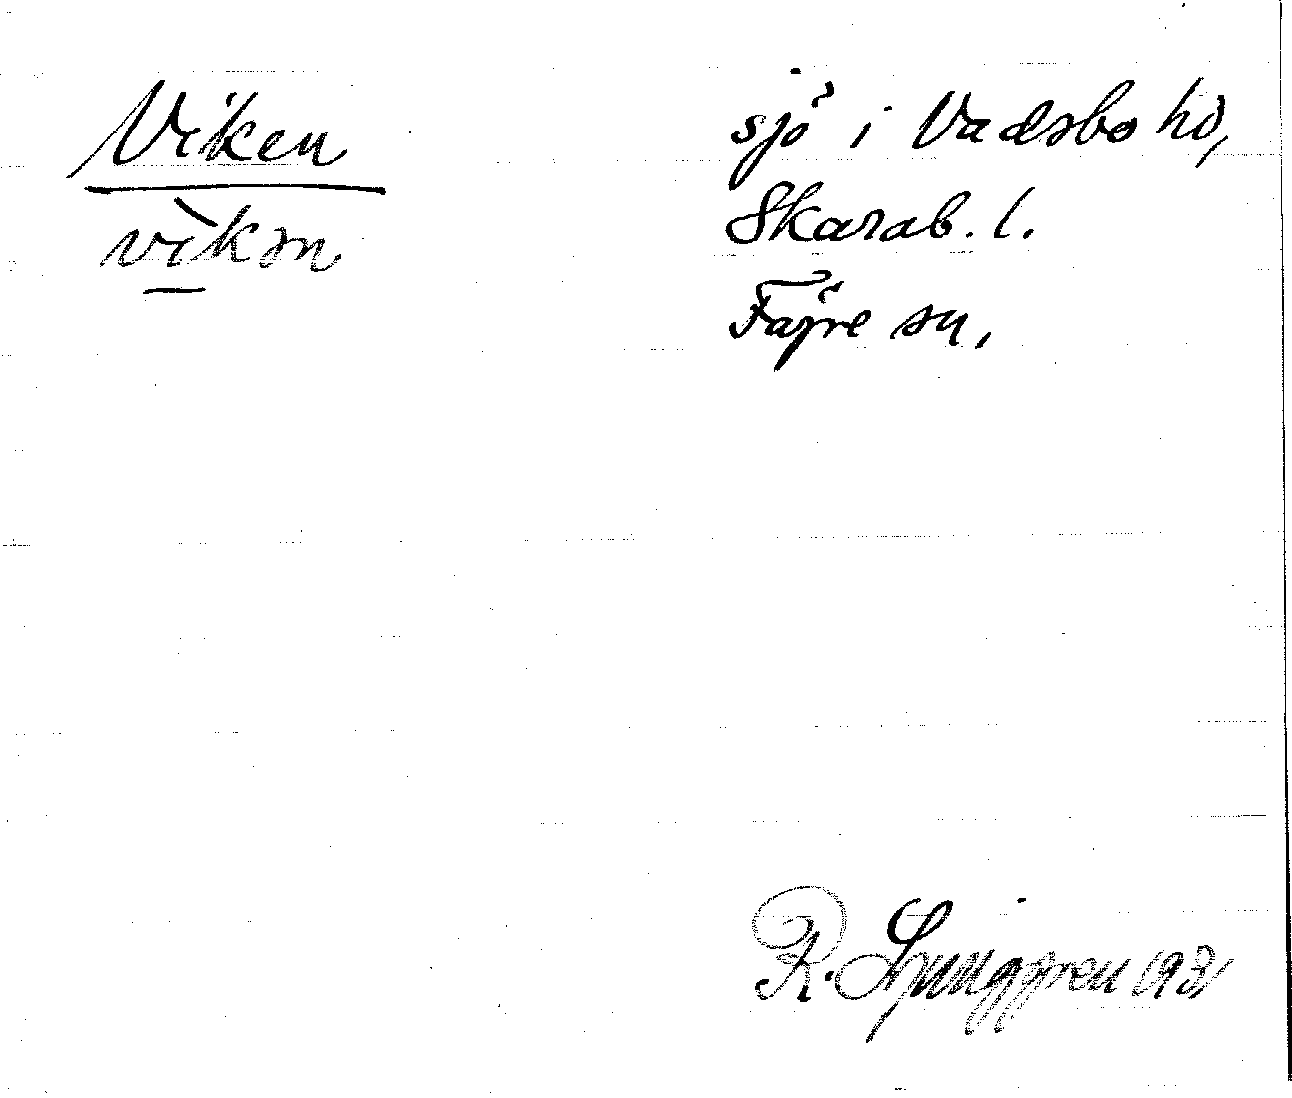 Viken
vìkən
sjö i Vadsbo hd,
Skarab. l.
Fägre sn,
R. Ljunggren 1931